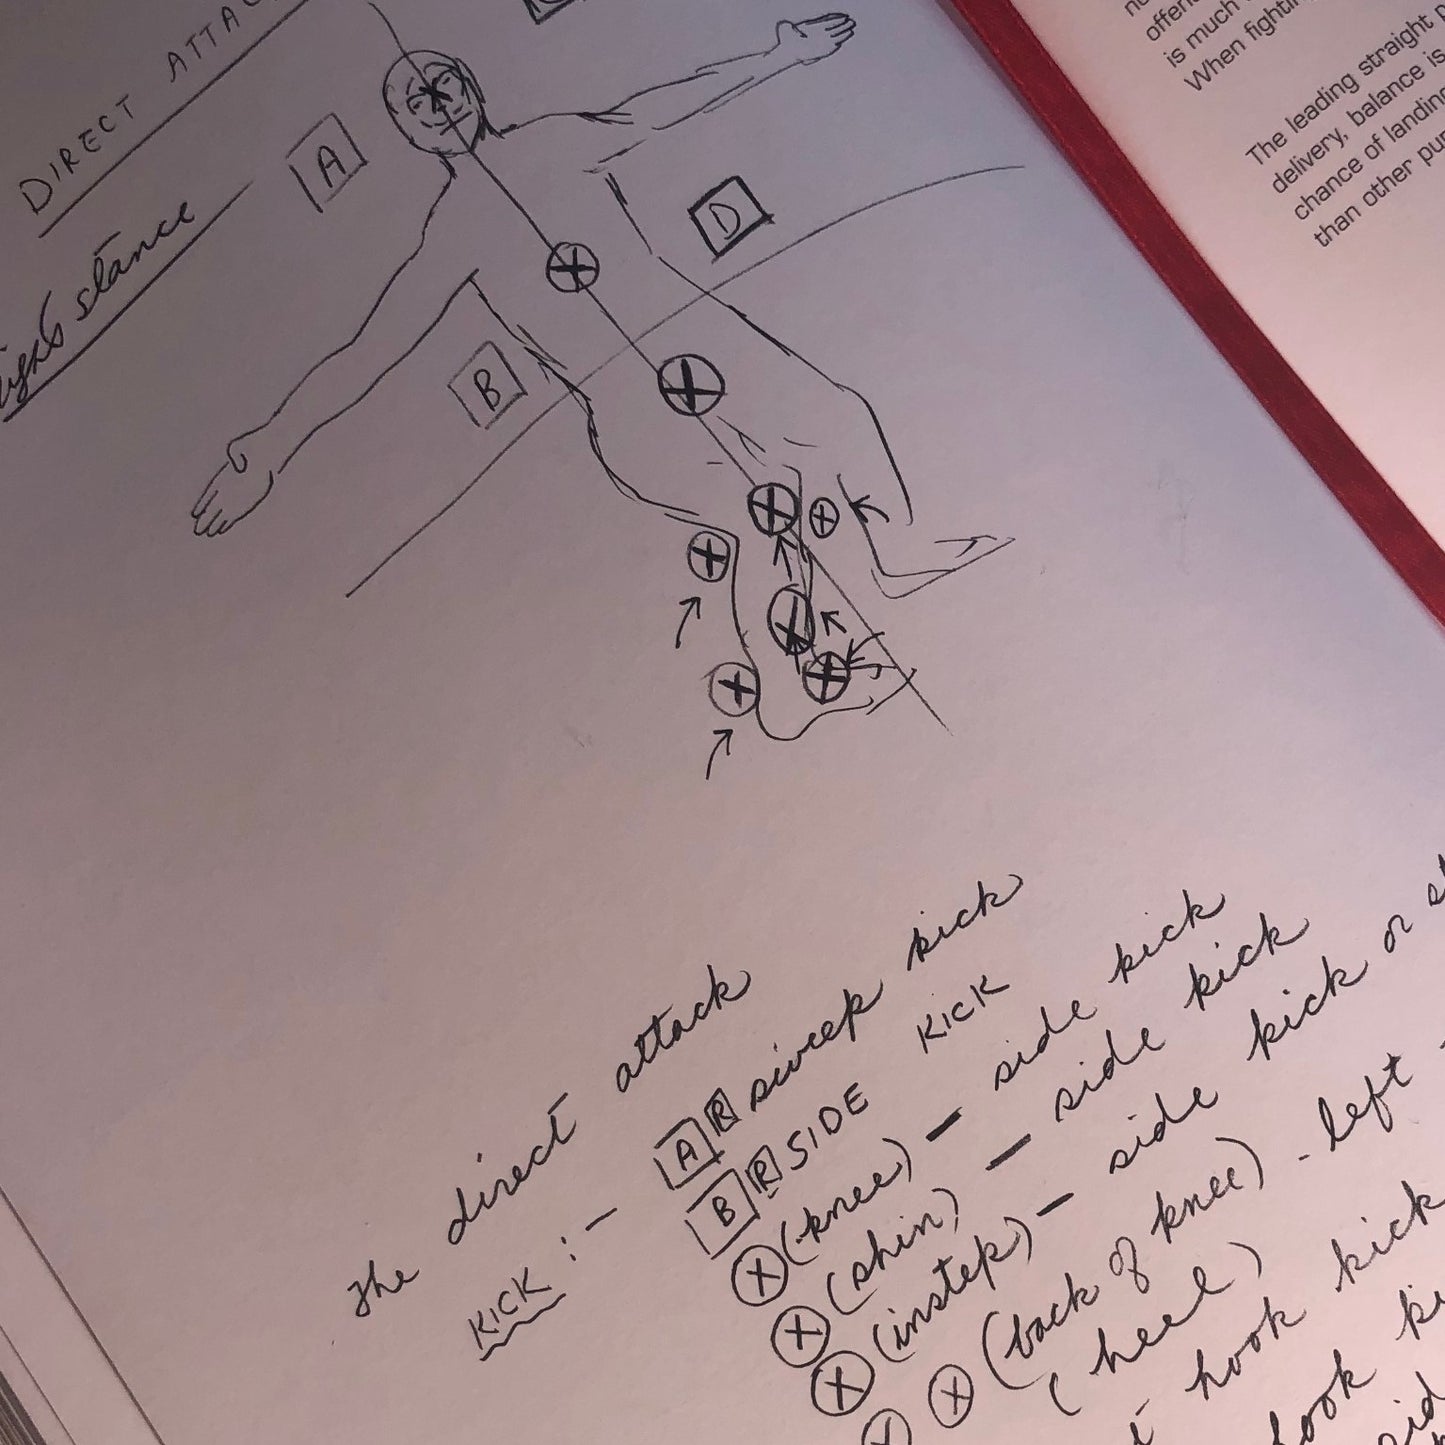 DIRECT ATTAC
stance
A
D
B
The direct attack
KICK :- A R sweep kick
B R SIDE KICK
X (knee) — side kick
X (shin) — side kick
X (instep) — side kick or
X X (back of knee) - left
(heel)
hook kick
hook
offen
is much
When fighting
The leading straight p
delivery, balance is
chance of landing
than other pun